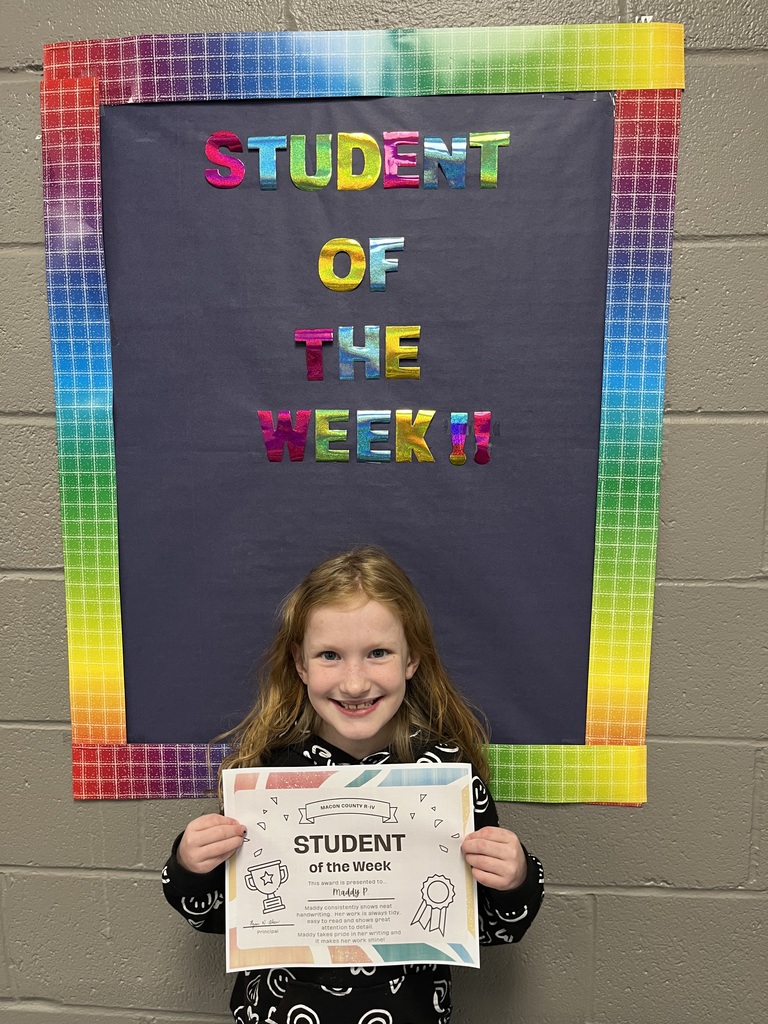 STUDENT
OF
THE
WEEK!!
MACON COUNTY R-IV
STUDENT
of the Week
This award is presented to...
Maddy P
Maddy consistently shows neat
handwriting. Her work is always tidy,
easy to read and shows great
attention to detail.
Maddy takes pride in her writing and
it makes her work shine!
Principal